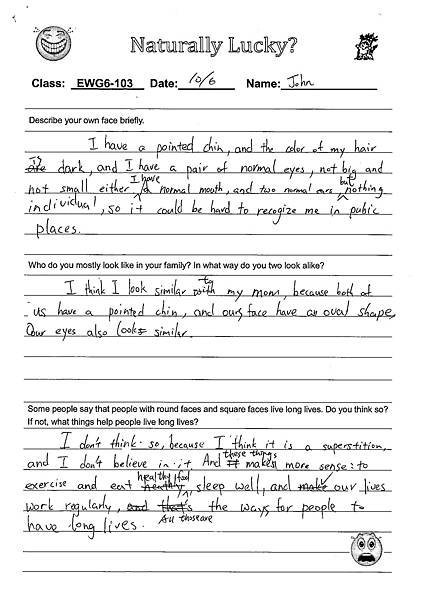 Naturally Lucky?
Class: EWG6-103 Date: 10/6 Name: John
Describe your own face briefly.
I have a pointed chin, and the color of my hair
is
are dark, and I have a pair of normal eyes, not big and
I have but
not small either, a normal mouth, and two normal ears nothing
individual, so it could be hard to recogize me in pubic
places.
Who do you mostly look like in your family? In what way do you two look alike?
to
I think I look similar with my mom, because both of
us have a pointed chin, and ours face have an oval shape,
Our eyes also looks similar.
Some people say that people with round faces and square faces live long lives. Do you think so?
If not, what things help people live long lives?
I don't think so, because I think it is a superstition,
these things
and I don't believe in it. And it makes more sense: to
healthy food
exercise and eat healthy, sleep well, and make our lives
work regularly, and that's the ways for people to
All those are
have long lives.